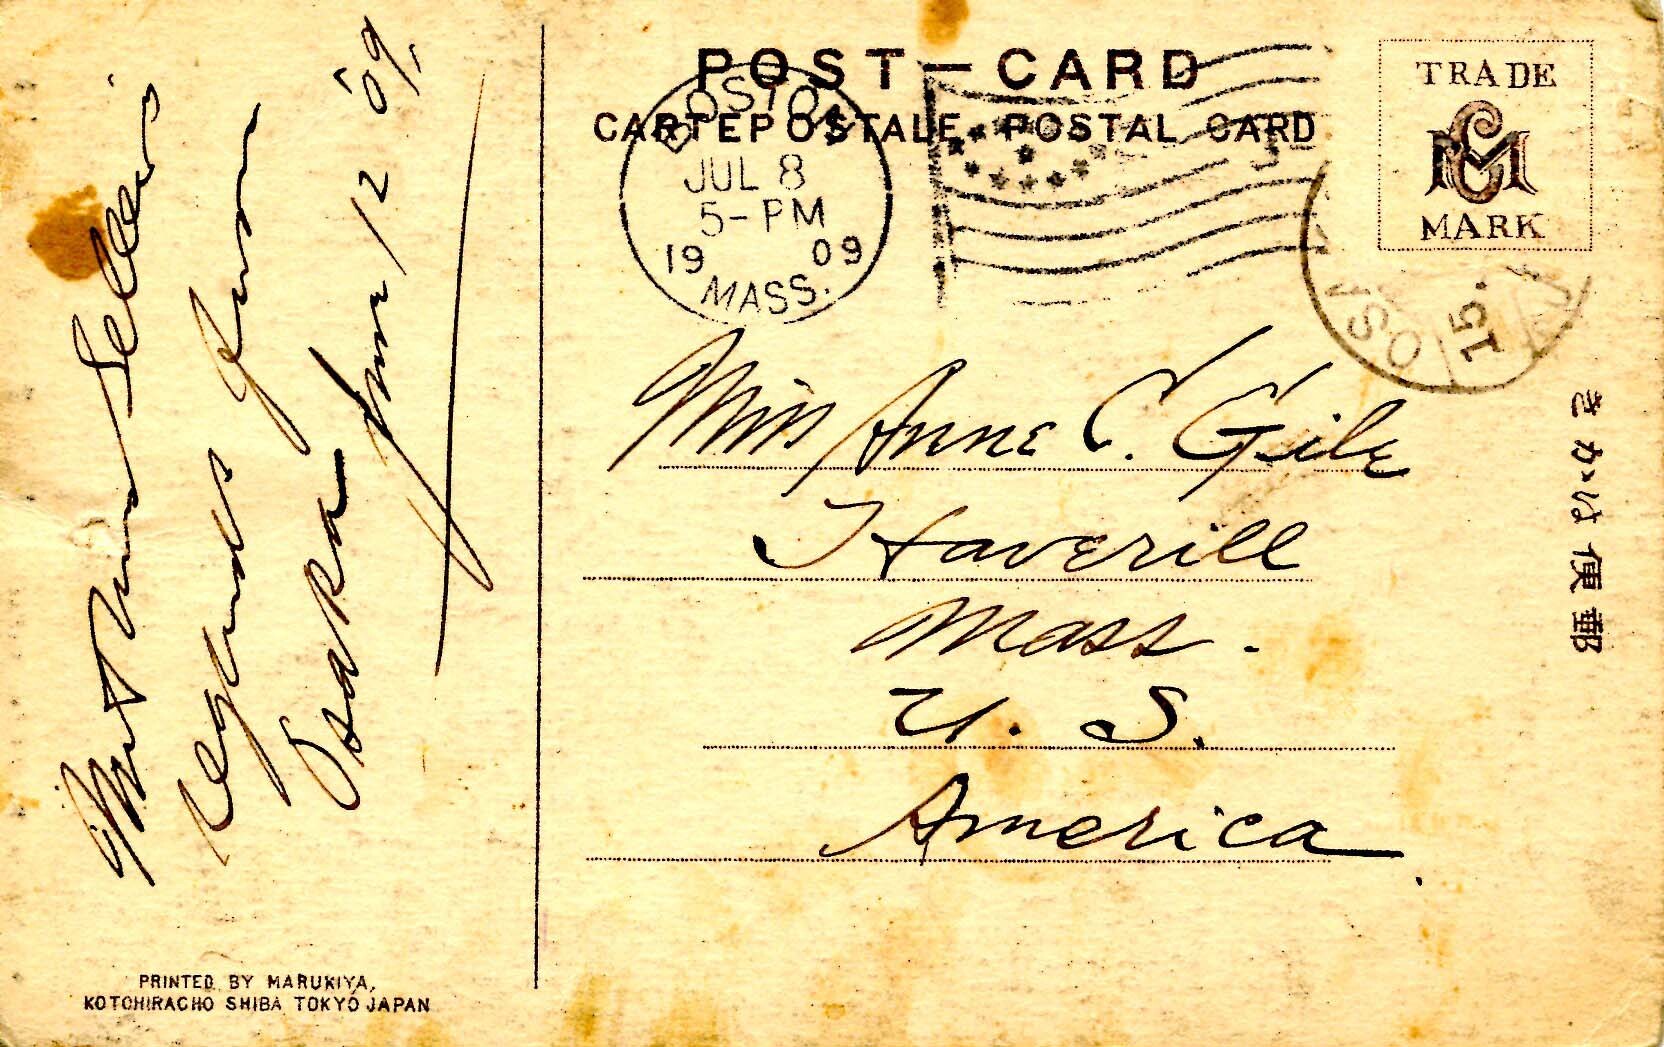 POST-CARD
CARTE POSTALE POSTAL CARD
TRADE
MARK
BOSTON
JUL 8
5-PM
1909
MASS.
15.
郵便はかき
Miss Anne C. Gile
Haverill
Mass.
U. S.
America
regards from
Osaka
June 12 '09,
PRINTED BY MARUKIYA,
KOTOHIRACHO SHIBA TOKYO JAPAN